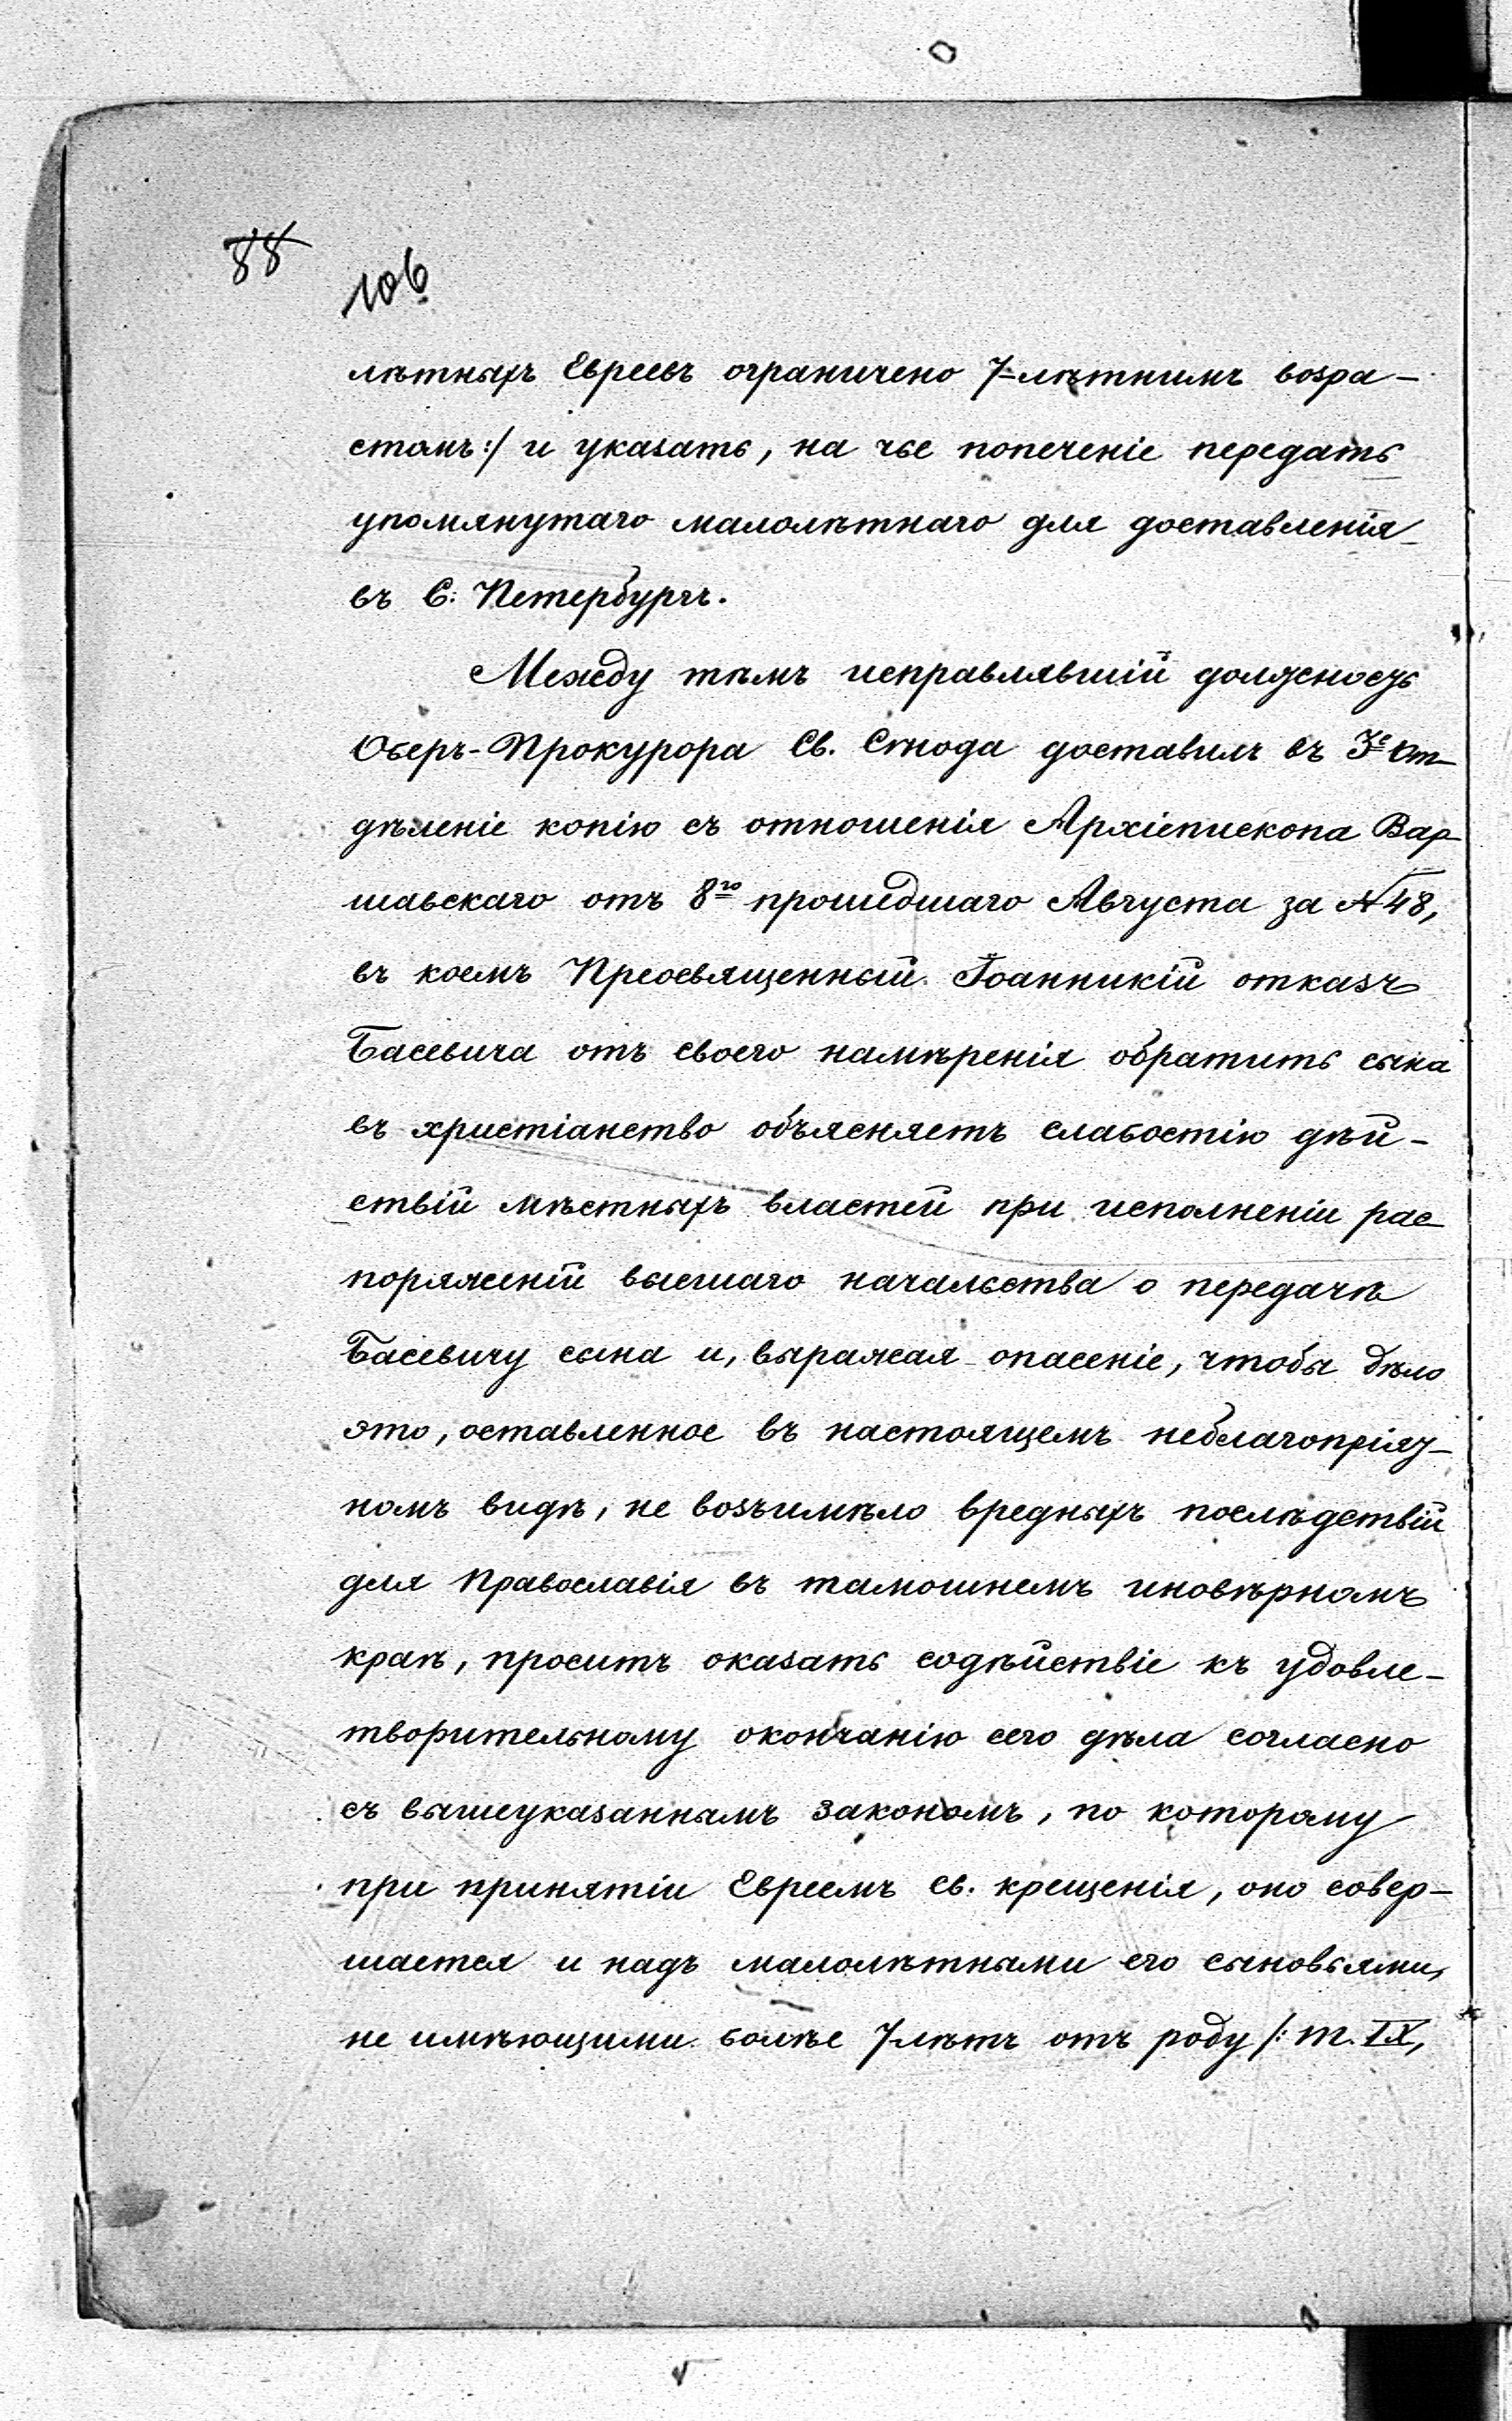 88
106
лѣтныхъ Евреевъ ограничено 7-лѣтнимъ возра-
стомъ:/ и указать, на чье попеченіе передать
упомянутаго малолѣтнаго для доставленія
въ С. Петербургъ.
Между тѣмъ исправлявшій должность
Оберъ-Прокурора Св. Сѵнода доставилъ въ 3е От-
дѣленіе копію съ отношенія Архіепископа Вар-
шавскаго отъ 8го прошедшаго Августа за № 48,
въ коемъ Преосвященный Іоанникій отказъ
Басевича отъ своего намѣренія обратить сына
въ христіанство объясняетъ слабостію дѣй-
ствій мѣстныхъ властей при исполненіи рас-
поряженій высшаго начальства о передачѣ
Басевичу сына и, выражая опасеніе, чтобы дѣло
это, оставленное въ настоящемъ неблагопріят-
номъ видѣ, не возъимѣло вредныхъ послѣдствій
для Православія въ тамошнемъ иновѣрномъ
краѣ, проситъ оказать содѣйствіе къ удовле-
творительному окончанію сего дѣла согласно
съ вышеуказаннымъ закономъ, по которому
при принятіи Евреемъ св. крещенія, оно совер-
шается и надъ малолѣтными его сыновьями,
не имѣющими болѣе 7 лѣтъ отъ роду /: т. IX,